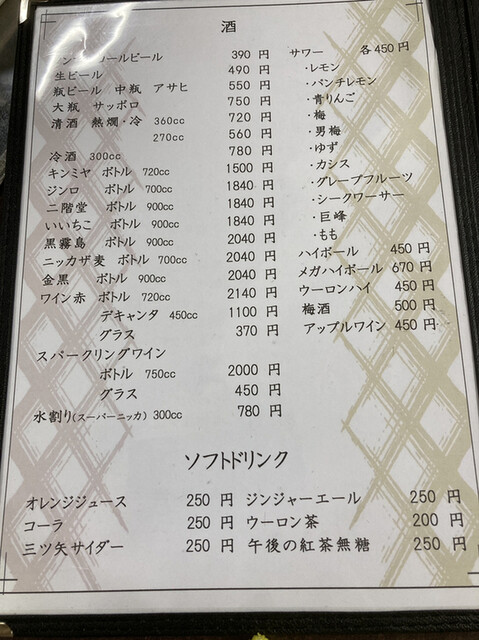 酒
ールビール 390 円
生ビール 490 円
瓶ビール 中瓶 アサヒ 550 円
大瓶 サッポロ 750 円
清酒 熱燗・冷 360cc 720 円
270cc 560 円
冷酒 300cc 780 円
キンミヤ ボトル 720cc 1500 円
ジンロ ボトル 700cc 1840 円
二階堂 ボトル 900cc 1840 円
いいちこ ボトル 900cc 1840 円
黒霧島 ボトル 900cc 2040 円
ニッカザ麦 ボトル 700cc 2040 円
金黒 ボトル 900cc 2040 円
ワイン赤 ボトル 720cc 2140 円
デキャンタ 450cc 1100 円
グラス 370 円
スパークリングワイン
ボトル 750cc 2000 円
グラス 450 円
水割り(スーパーニッカ) 300cc 780 円
サワー 各450 円
・レモン
・パンチレモン
・青りんご
・梅
・男梅
・ゆず
・カシス
・グレープフルーツ
・シークワーサー
・巨峰
・もも
ハイボール 450 円
メガハイボール 670 円
ウーロンハイ 450 円
梅酒 500 円
アップルワイン 450 円
ソフトドリンク
オレンジジュース 250 円 ジンジャーエール 250 円
コーラ 250 円 ウーロン茶 200 円
三ツ矢サイダー 250 円 午後の紅茶無糖 250 円